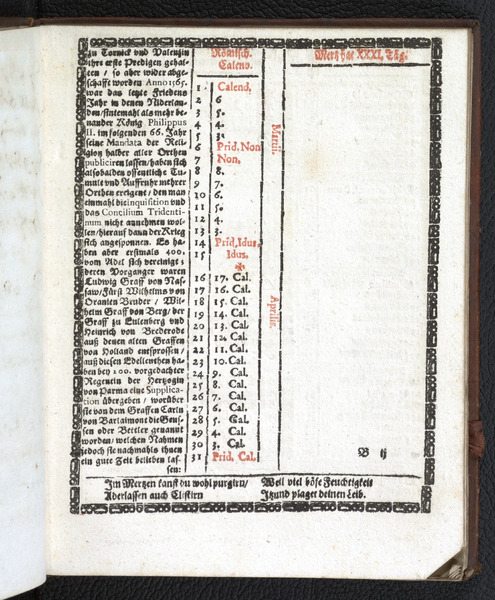 zu Tornick vnd Valenzin
ihre erste Predigen gehal-
ten / so aber wider abge-
schafft worden Anno 1565.
war das letzte Friedens
Jahr in denen Niderlan-
den / sintemahl als mehr be-
nander König Philippus
II. im folgenden 66. Jahr
seine Mandata der Reli-
gion halber aller Orthen
publiciren lassen / haben sich
alsobalden offentliche Tu-
mult vnd Auffruhr mehrer
Orthen ereigent / den man
einmahl die inquisition vnd
das Concilium Tridenti-
num nicht annehmen wol-
len / hierauf dann der Krieg
sich angesponnen. Es ha-
ben aber erstmals 400.
vom Adel sich vereinigt;
deren Vorganger waren
Ludwig Graff von Nas-
saw / Fürst Wilhelms von
Oranien Bruder / Wil-
helm Graff von Berg / der
Graff zu Culenberg vnd
Heinrich von Brederode
auß denen alten Graffen
von Holland entsprossen /
auß diesen Edelleuthen ha-
ben bey 200. vorgedachter
Regentin der Hertzogin
von Parma eine Supplica-
tion übergeben / worüber
sie von dem Graffen Carln
von Barlaimont die Geus-
sen oder Bettler genannt
worden / welchen Nahmen
jedoch sie nachmahls ihnen
ein gute Zeit belieben las-
sen:
Römisch.
Calend.
1 Calend.
2 6
3 5.
4 4.
5 3.
6 Prid. Non
7 Non.
8 8.
9 7.
10 6.
11 5.
12 4.
13 3.
14 Prid. Idus.
15 Idus.
16 17. Cal.
17 16. Cal.
18 15. Cal.
19 14. Cal.
20 13. Cal.
21 12. Cal.
22 11. Cal.
23 10. Cal.
24 9. Cal.
25 8. Cal.
26 7. Cal.
27 6. Cal.
28 5. Cal.
29 4. Cal.
30 3. Cal.
31 Prid. Cal.
Martii.
Aprilis.
Mertz hat XXXI. Täg.
B ij
Im Mertzen kanst du wohl purgirn /
Aderlassen auch Clistirn
Weil viel böse Feuchtigkeit
Itzund plaget deinen Leib.